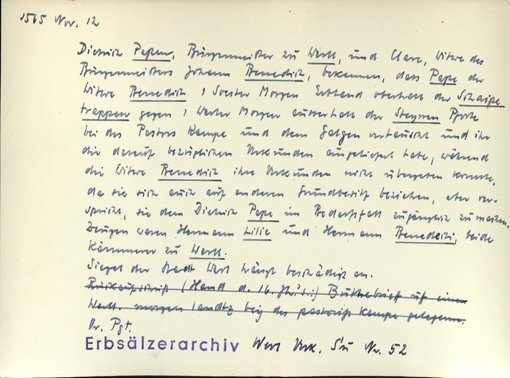 1565 Nov. 12
Dietrich Papen, Bürgermeister zu Werl, und Clare, Witwe des
Bürgermeisters Johann Benedict, bekennen, dass Pape der
Witwe Benedict 1 Soester Morgen Erbland oberhalb der Schaps
trappen gegen 1 Werler Morgen ausserhalb der Steynen Pforte
bei des Pastors Kampe und dem Galgen vertauscht und ihr
die darauf bezüglichen Urkunden ausgeliefert habe, während
die Witwe Benedict ihre Urkunden nicht übergeben konnte,
da sie sich auch auf anderen Grundbesitz beziehen, aber ver-
spricht, sie dem Dietrich Pape im Bedarfsfall zugänglich zu machen.
Zeugen waren Hermann Lilie und Hermann Benedicti, beide
Kämmerer zu Werl.
Siegel der Stadt Werl hängt beschädigt an.
Rückaufschrift (Hand d. 16. Jh.s:) Butebrief uf einen
Werl. morgen landtz beij des pastoirs kampe gelegenn.
Or. Pgt.
Erbsälzerarchiv Werl Urk. Nr. 52